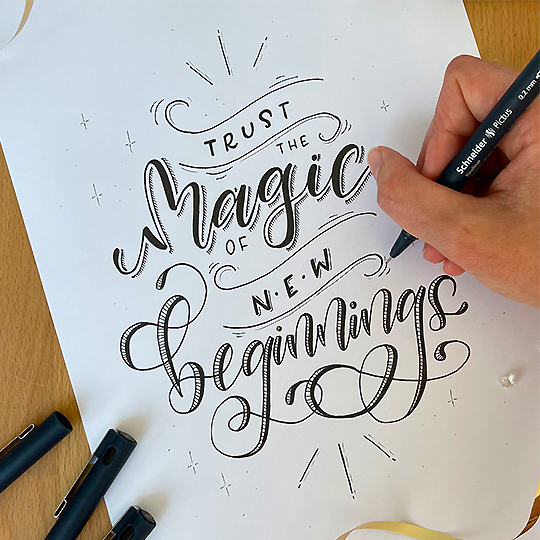 TRUST
THE
Magic
OF
N·E·W
beginnings
Schneider Pictus
0.2 mm